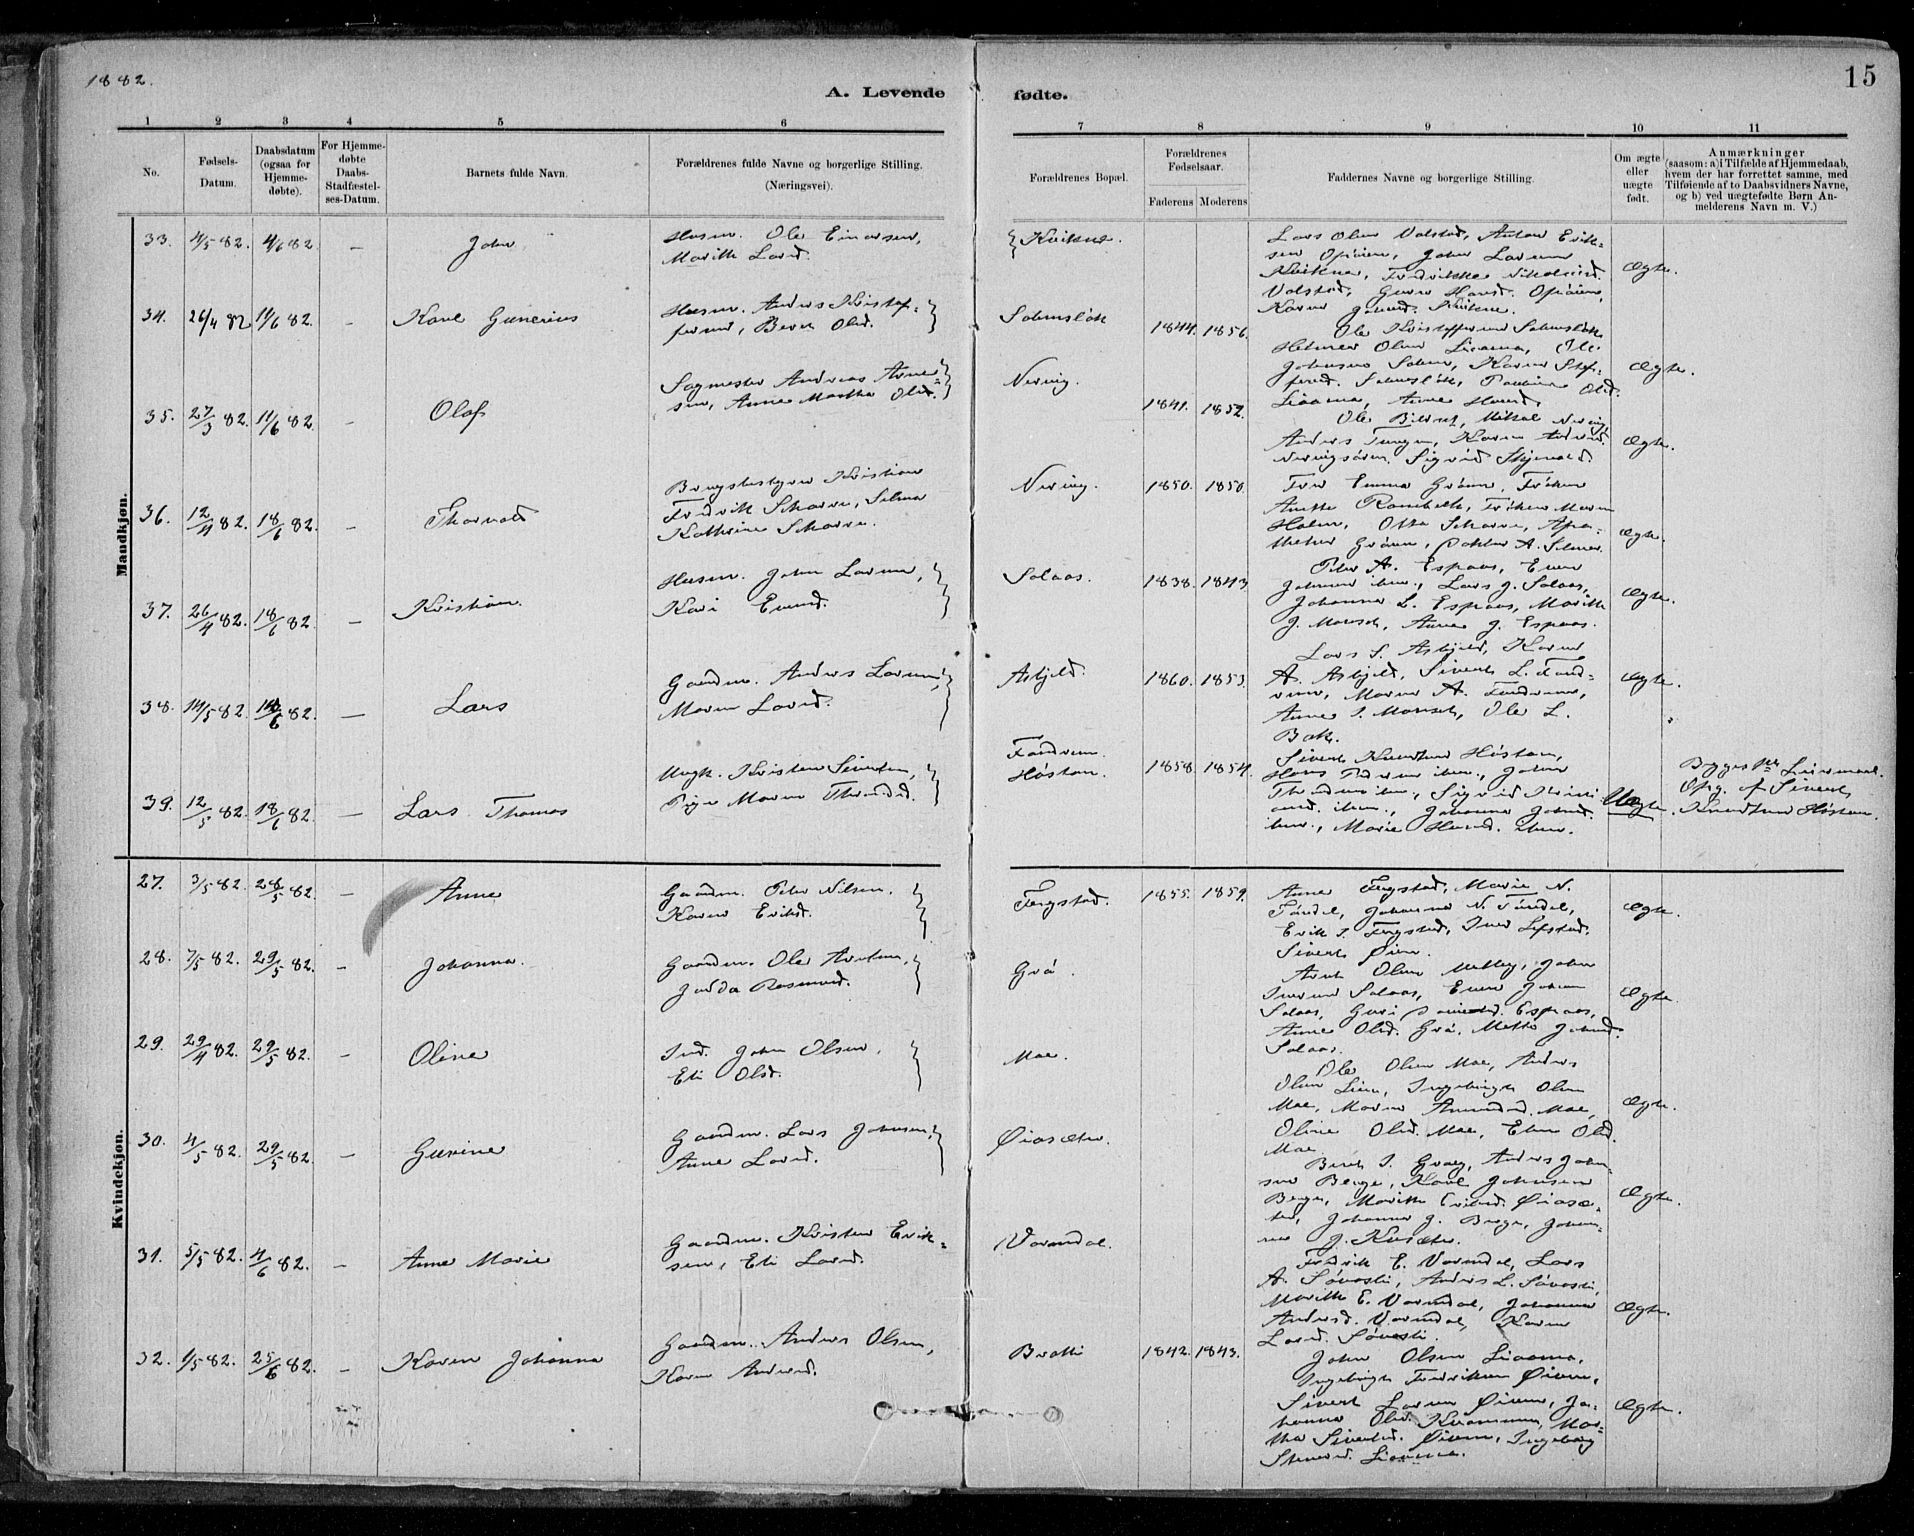 1882.
15
A. Levende fødte.
1 2 3 4 5 6 7 8 9 10 11
No.
Fødsels-
Datum.
Daabsdatum
(ogsaa for
Hjemme-
døbte).
For Hjemme-
døbte
Daabs-
Stadfæstel-
ses-Datum.
Barnets fulde Navn.
Forældrenes fulde Navne og borgerlige Stilling.
(Næringsvei).
Forældrenes Bopæl.
Forældrenes
Fødselsaar.
Faderens Moderens
Faddernes Navne og borgerlige Stilling.
Om ægte
eller
uægte
født.
Anmærkninger
(saasom: a) i Tilfælde af Hjemmedaab,
hvem der har forrettet samme, med
Tilføiende af to Daabsvidners Navne,
og b) ved uægtefødte Børn An-
melderens Navn m. V.)
Mandkjøn.
33. 4/5 82. 4/6 82 – John
Husm. Ole Einarsen,
Marith Larsd.
Kvikne.
Lars Olsen Valstad, Anton Erik-
sen Opøien, John Larsen
Kvikne, Fredrikke Nikolaisd.
Valstad, Guru Hansd. Opøien,
Karen Johnsd. Kvikne.
Ægte.
34. 26/4 82 11/6 82. – Karl Gunerius
Husm. Anders Kristof-
fersen, Berit Olsd.
Solemslök
1844. 1856.
Ole Kristoffersen Solemslök
Helmer Olsen Lioama, Ole
Johnsen Solem, Karen Stef-
fensd. Solemslök, Pauline Olsd.
Lioama, Anne Hansd.
Ægte.
35. 27/3 82. 11/6 82. – Olaf
Sagmester Andreas Arne-
sen, Anne Martha Olsd.
Nervig.
1841. 1852.
Ole Mikal Nervig,
Anders Karen
Sigrid
Ægte.
36. 12/4 82. 18/6 82. – Thorvald
Brugsbestyrer Kristian
Fredrik Scharre, Selma
Kathrine Scharre.
Nervig.
1850. 1850.
Fru Emma Grönn, Fröken
Anette Fröken Maren
Holm, Otto Scharre, Apo-
theker Grönn, Doktor A. Selmer.
Ægte.
37. 26/4 82. 18/6 82. – Kristian.
Husm. John Larsen,
Kari Evensd.
Solaas.
1838. 1843.
Peter A. Espaas, Even
Johnsen ibm., Lars J. Solaas,
Johanna L. Espaas, Marith
J. Marsch, Anne J. Espaas.
Ægte.
38. 14/5 82. 18/6 82. – Lars
Gaardm. Anders Larsen,
Maren Larsd.
Asbjeld.
1860. 1853.
Lars S. Asbjeld, Karen
A. Asbjeld, Sivert L. Fand-
rem, Maren A. Fandrem,
Anne I. Marsch, Ole L.
Bak.
Ægte.
39. 12/5 82. 18/6 82. – Lars Thomas
Ungk. Kristen Sivertsen,
Pige Maren Thoresd.
Fandrem
Höston.
1858. 1854.
Sivert Knudsen Höston,
Hans Pedersen ibm., John
ibm., Sigrid
ibm., Johanna Johnsd.
ibm., Marie Hansd. ibm.
Uægte.
2det Leiermaal.
Opg. af Sivert
Knudsen Höston.
Kvindekjøn.
27. 3/5 82. 28/5 82. – Anne
Gaardm. Peter Nilsen,
Karen Eriksd.
Fergstad.
1855. 1859.
Anne Fergstad, Marie N.
Johanna N.
Erik I. Fergstad, Iver Lefstad,
Sivert Öien.
Ægte.
28. 7/5 82. 29/5 82. – Johanna.
Gaardm. Ole Arntsen,
Jodda Rasmusd.
Grö.
Arnt Olsen John
Iversen Solaas, Even Johnsen
Solaas, Guri Espaas,
Anne Olsd. Grö, Mette Johnsd.
Solaas.
Ægte.
29. 29/4 82. 29/5 82. – Oline
Ind. John Olsen,
Eli Olsd.
Moe.
Ole Olsen Moe, Anders
Olsen Lien, Ingebrigt Olsen
Moe, Maren Amundsd. Moe,
Oline Olsd. Moe, Olsd.
Moe.
Ægte.
30. 4/5 82. 29/5 82. – Gurine
Gaardm. Lars Johnsen,
Anne Larsd.
Öiasæter.
Berit I. Anders John-
sen Berge, Karl Johnsen
Berge, Marith Öiasæ-
ter, Johanna J. Berge, Johan-
na J.
Ægte.
31. 5/5 82. 4/6 82. – Anne Marie
Gaardm. Kristen Erik-
sen, Eli Larsd.
Vormdal.
Fredrik E. Vormdal, Lars
A. Sövasli, Anders L. Sövasli,
Marith E. Vormdal, Johanna
Andersd. Vormdal, Karen
Larsd. Sövasli.
Ægte.
32. 1/5 82. 25/6 82. – Karen Johanna
Gaardm. Anders Olsen,
Karen Andersd.
Bratli
1842. 1843.
John Olsen Lioama,
Ingebrigt Fredriksen Öien,
Sivert Larsen Öien, Jo-
hanna Olsd. Mar-
tha Sivertsd. Öien, Ingeborg
Lioama.
Ægte.